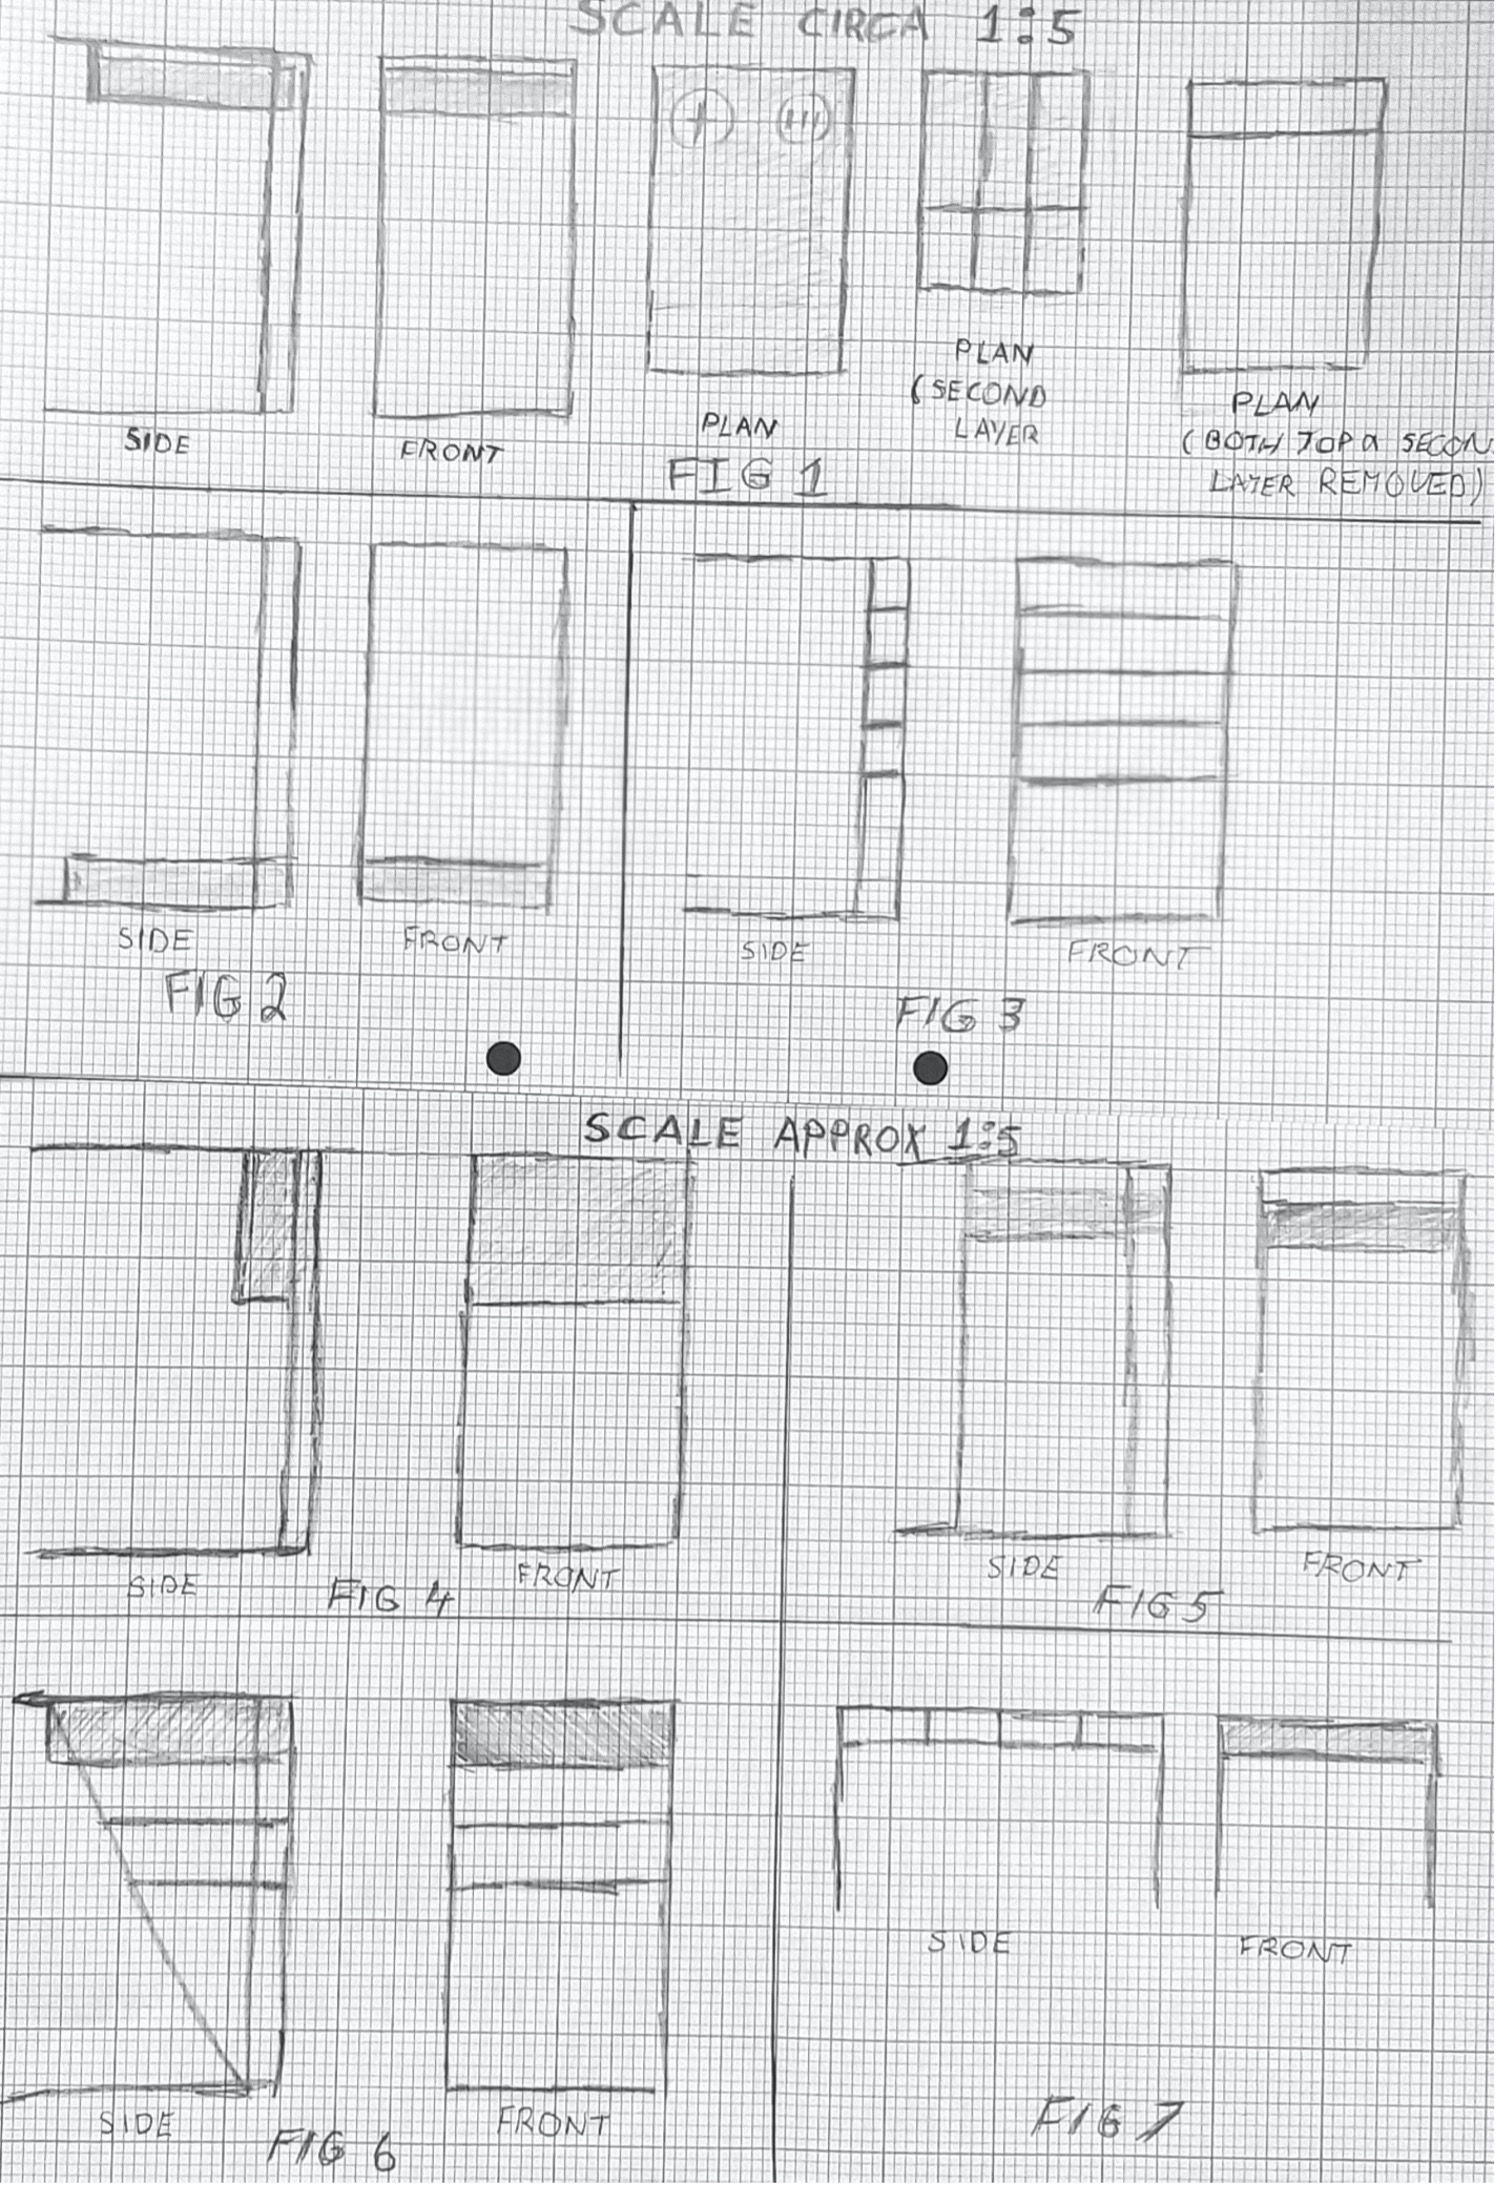 SCALE CIRCA 1:5
SIDE
FRONT
PLAN
PLAN
(SECOND
LAYER
PLAN
(BOTH TOP & SECON
LAYER REMOVED)
FIG 1
SIDE
FRONT
FIG 2
SIDE
FRONT
FIG 3
SCALE APPROX 1:5
SIDE
FRONT
FIG 4
SIDE
FRONT
FIG 5
SIDE
FRONT
FIG 6
SIDE
FRONT
FIG 7